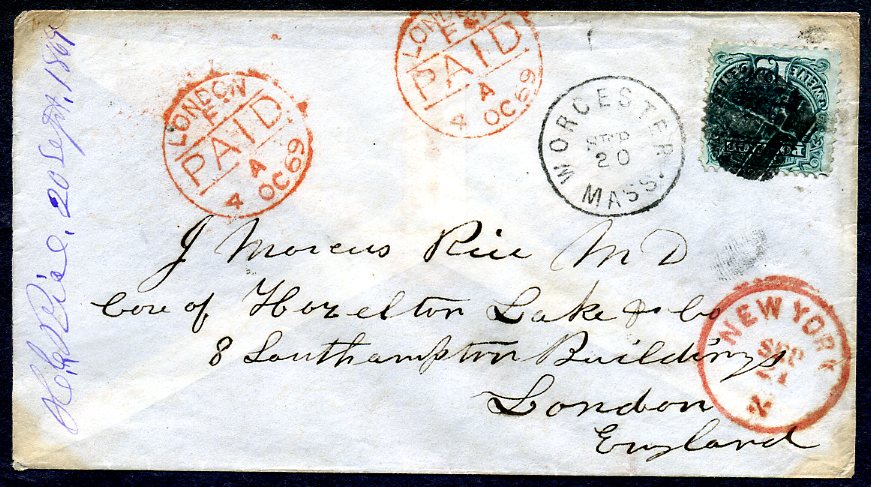 LONDON
E.C
PAID
A
4 OC 69
LONDON
E.C
PAID
A
4 OC 69
WORCESTER
SEP
20
MASS.
NEW YORK
SEP
J Marcus Rice M D
Care of Hazelton Lake & Co
8 Southampton Buildings
London
England
Rice. 20 Sept. 1869